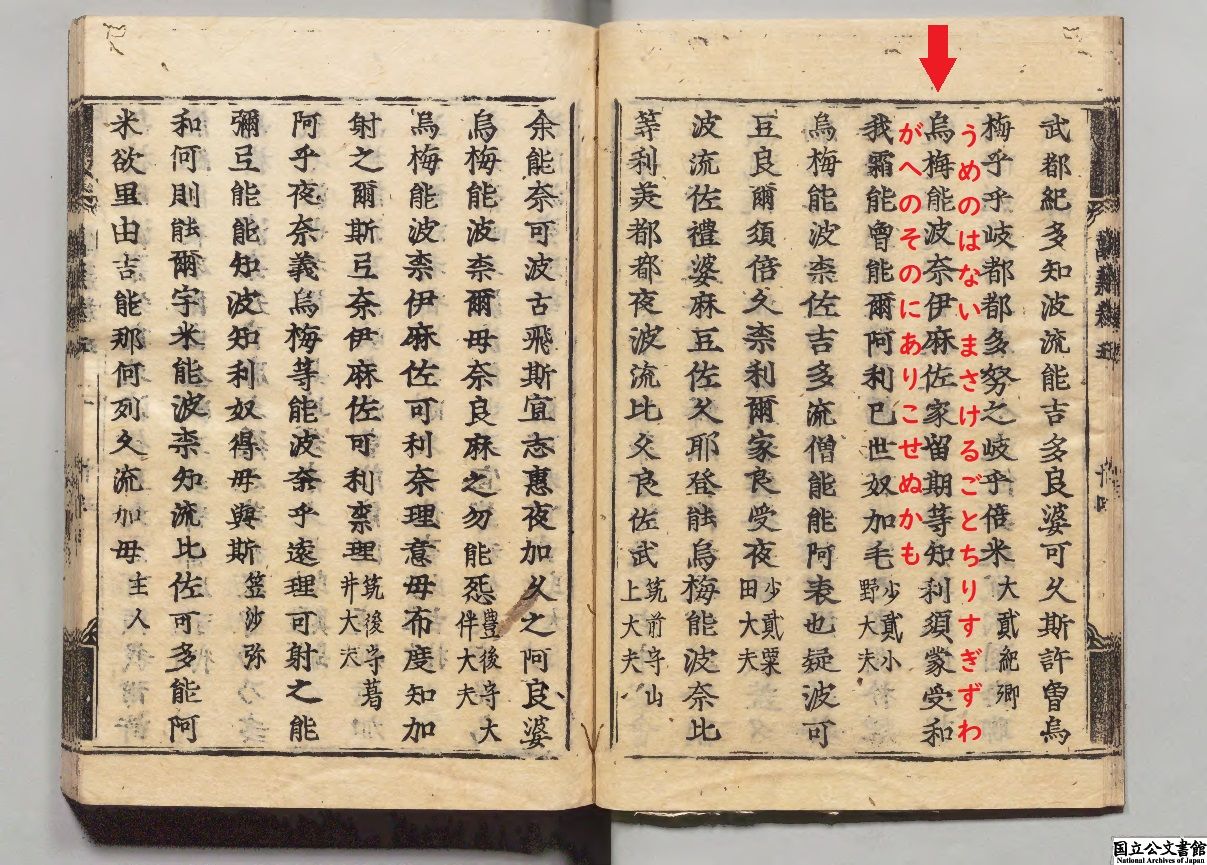 武都紀多知波流能吉多良婆可久斯許曽烏
梅乎乎岐都都多努之岐乎倍米 大貳紀卿
うめのはないまさけるごとちりすぎずわ
烏梅能波奈伊麻佐家留期等知利須蒙受和
がへのそのにありこせぬかも
我霸能曽能爾阿利己世奴加毛 少貳小野大夫
烏梅能波柰佐吉多流僧能能阿衷也疑波可
豆良爾須倍久柰利爾家良受夜 少貳粟田大夫
波流佐禮婆麻豆佐久耶登能烏梅能波奈比
等利美都都夜波流比久良佐武 筑前守山上大夫
余能奈可波古飛斯宜志惠夜加久之阿良婆
烏梅能波柰爾毋奈良麻之勿能怨 豊後守大伴大夫
烏梅能波柰伊麻佐可利奈理意毋布度知加
射之爾斯弖奈伊麻佐可利柰理 筑後守葛井大夫
阿乎夜奈義烏梅等能波奈乎遠理可射之能
彌弖能能知波知利奴得毋與斯 笠沙弥
和何則能爾宇米能波柰知流比佐可多能阿
米欲里由吉能那何列久流加毋 主人
国立公文書館
National Archives of Japan